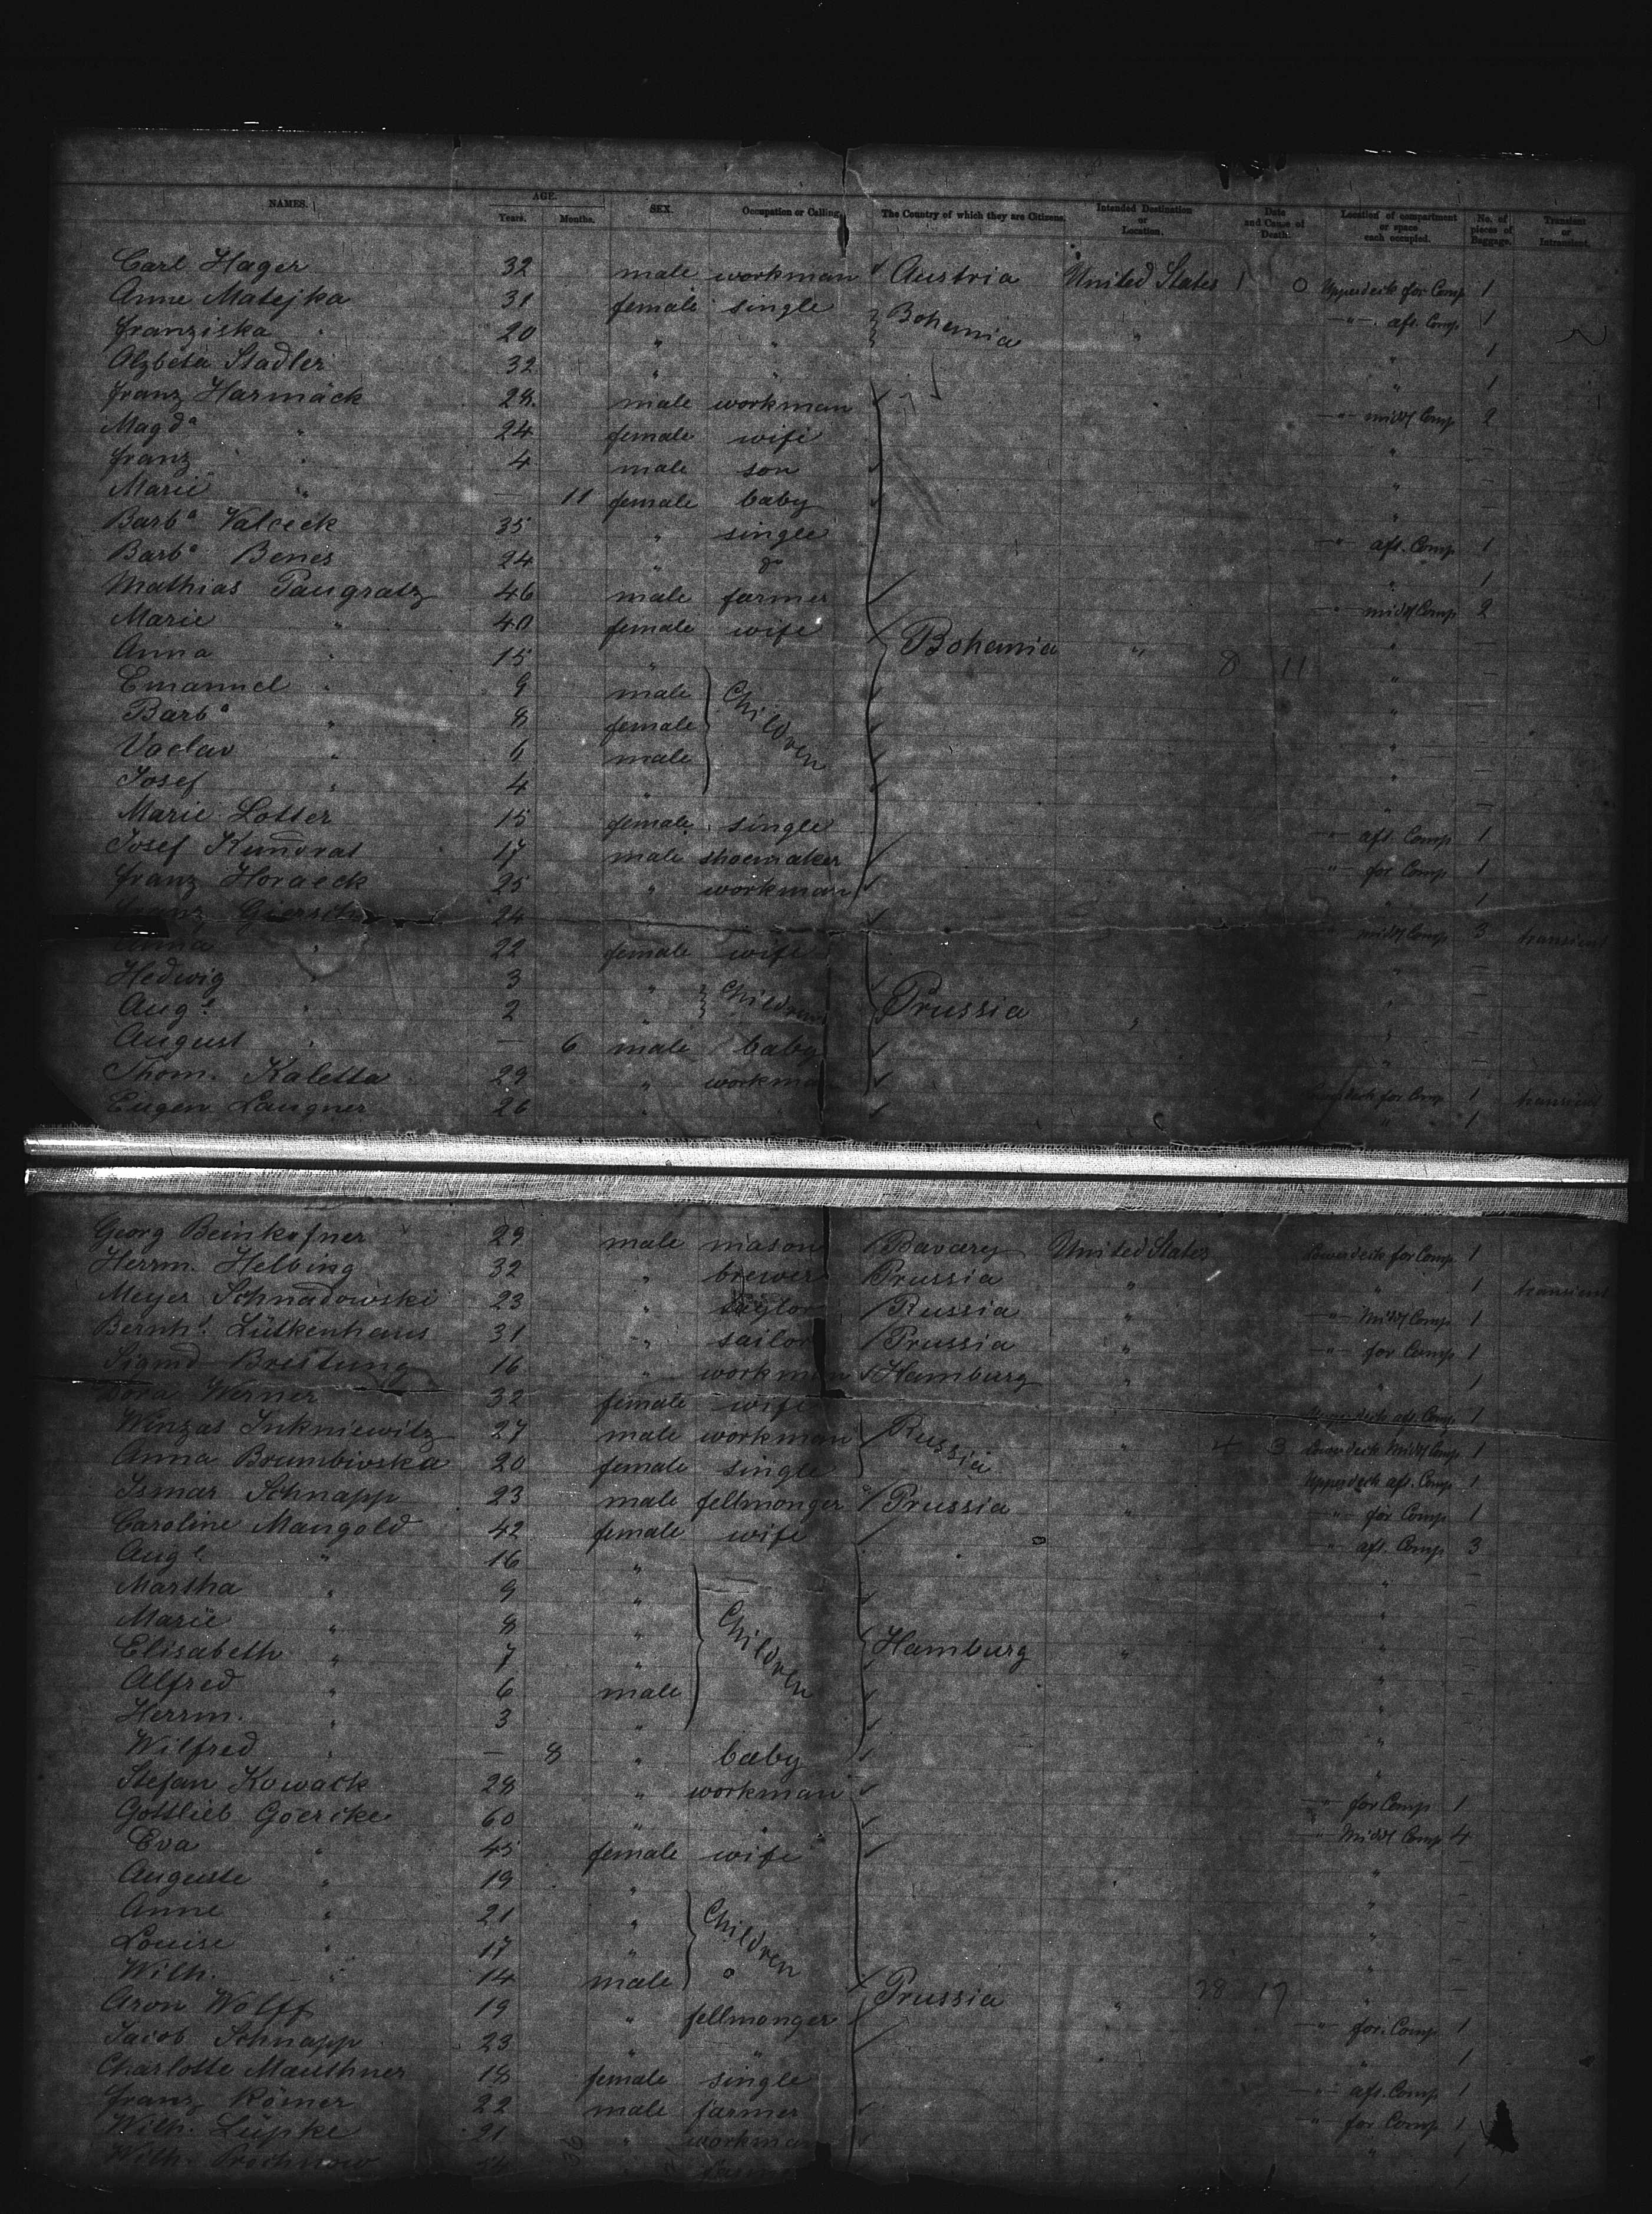 NAMES. AGE. Years. Months. SEX. Occupation or Calling. The Country of which they are Citizens. Intended Destination or Location. Date and Cause of Death. Location of compartment or space each occupied. No. of pieces of Baggage. Transient or Intransient.
Carl Hager 32 male workman Austria United States 1 0 Upperdeck for Comp 1
Anne Matejka 31 female single Bohemia " -"- aft. Comp 1
Franziska " 20 " " " 1
Alzbeta Stadler 32 " " " 1
Franz Harmack 28 male workman -"- middl Comp 2
Magda " 24 female wife " -
Franz " 4 male son " -
Marie " - 11 female baby " -
Barba Valceck 35 " single -"- aft. Comp 1
Barba Benes 24 " do " 1
Mathias Paugratz 46 male farmer -"- middl Comp 2
Marie " 40 female wife Bohemia " 8 11 " -
Anna " 15 " " -
Emanuel " 9 male Children " -
Barba " 8 female " -
Vaclav " 6 male " -
Josef " 4 " " -
Marie Lotter 15 female single -"- aft. Comp 1
Josef Kundrat 17 male shoemaker -"- for Comp 1
Franz Horaeck 25 " workman " 1
Franz Giersch 24 middl Comp 3 transient
Anna " 22 female wife " -
Hedwig " 3 " Children " -
Auge " 2 " Prussia " " -
August " - 6 male baby " -
Thom. Kaletta 29 " workman for Comp 1 transient
Eugen Laugner 26 " " 1
Georg Beinkofner 29 male mason Bavary United States Lowerdeck for Comp 1
Herrm. Helbing 32 " brewer Prussia " " 1 transient
Meyer Schnadowski 23 " taylor Russia " -"- Middl Comp 1
Bernhd. Lütkenhaus 31 " sailor Prussia " -"- for Comp 1
Sigmd Breitung 16 " workman Hamburg " " 1
Dora Werner 32 female wife Upperdeck aft. Comp 1
Winzas Inkniewitz 27 male workman Russia " 4 3 Lowerdeck Middl Comp 1
Anna Brumbivska 20 female single Upperdeck aft. Comp 1
Ismar Schnapp 23 male fellmonger Prussia " -"- for Comp 1
Caroline Mangold 42 female wife -"- aft. Comp 3
Auge. " 16 " " -
Martha " 9 " Children " -
Marie " 8 " " -
Elisabeth " 7 " Hamburg " " -
Alfred " 6 male " -
Herrm. " 3 " " -
Wilfred " - 8 " baby " -
Stefan Kowack 28 " workman -"- for Comp 1
Gottlieb Goercke 60 " " -"- Middl Comp 4
Eva " 45 female wife " -
Auguste " 19 " " -
Anne " 21 " Children " -
Louise " 17 " " -
Wilh. " 14 male Prussia " 28 17 " -
Aron Wolff 19 " fellmonger -"- for. Comp 1
Jacob Schnapp 23 " " " 1
Charlotte Mauthner 18 female single -"- aft. Comp 1
Franz Römer 22 male farmer -"- for Comp 1
Wilh. Lüpke 21 " workman " 1
Wilh.